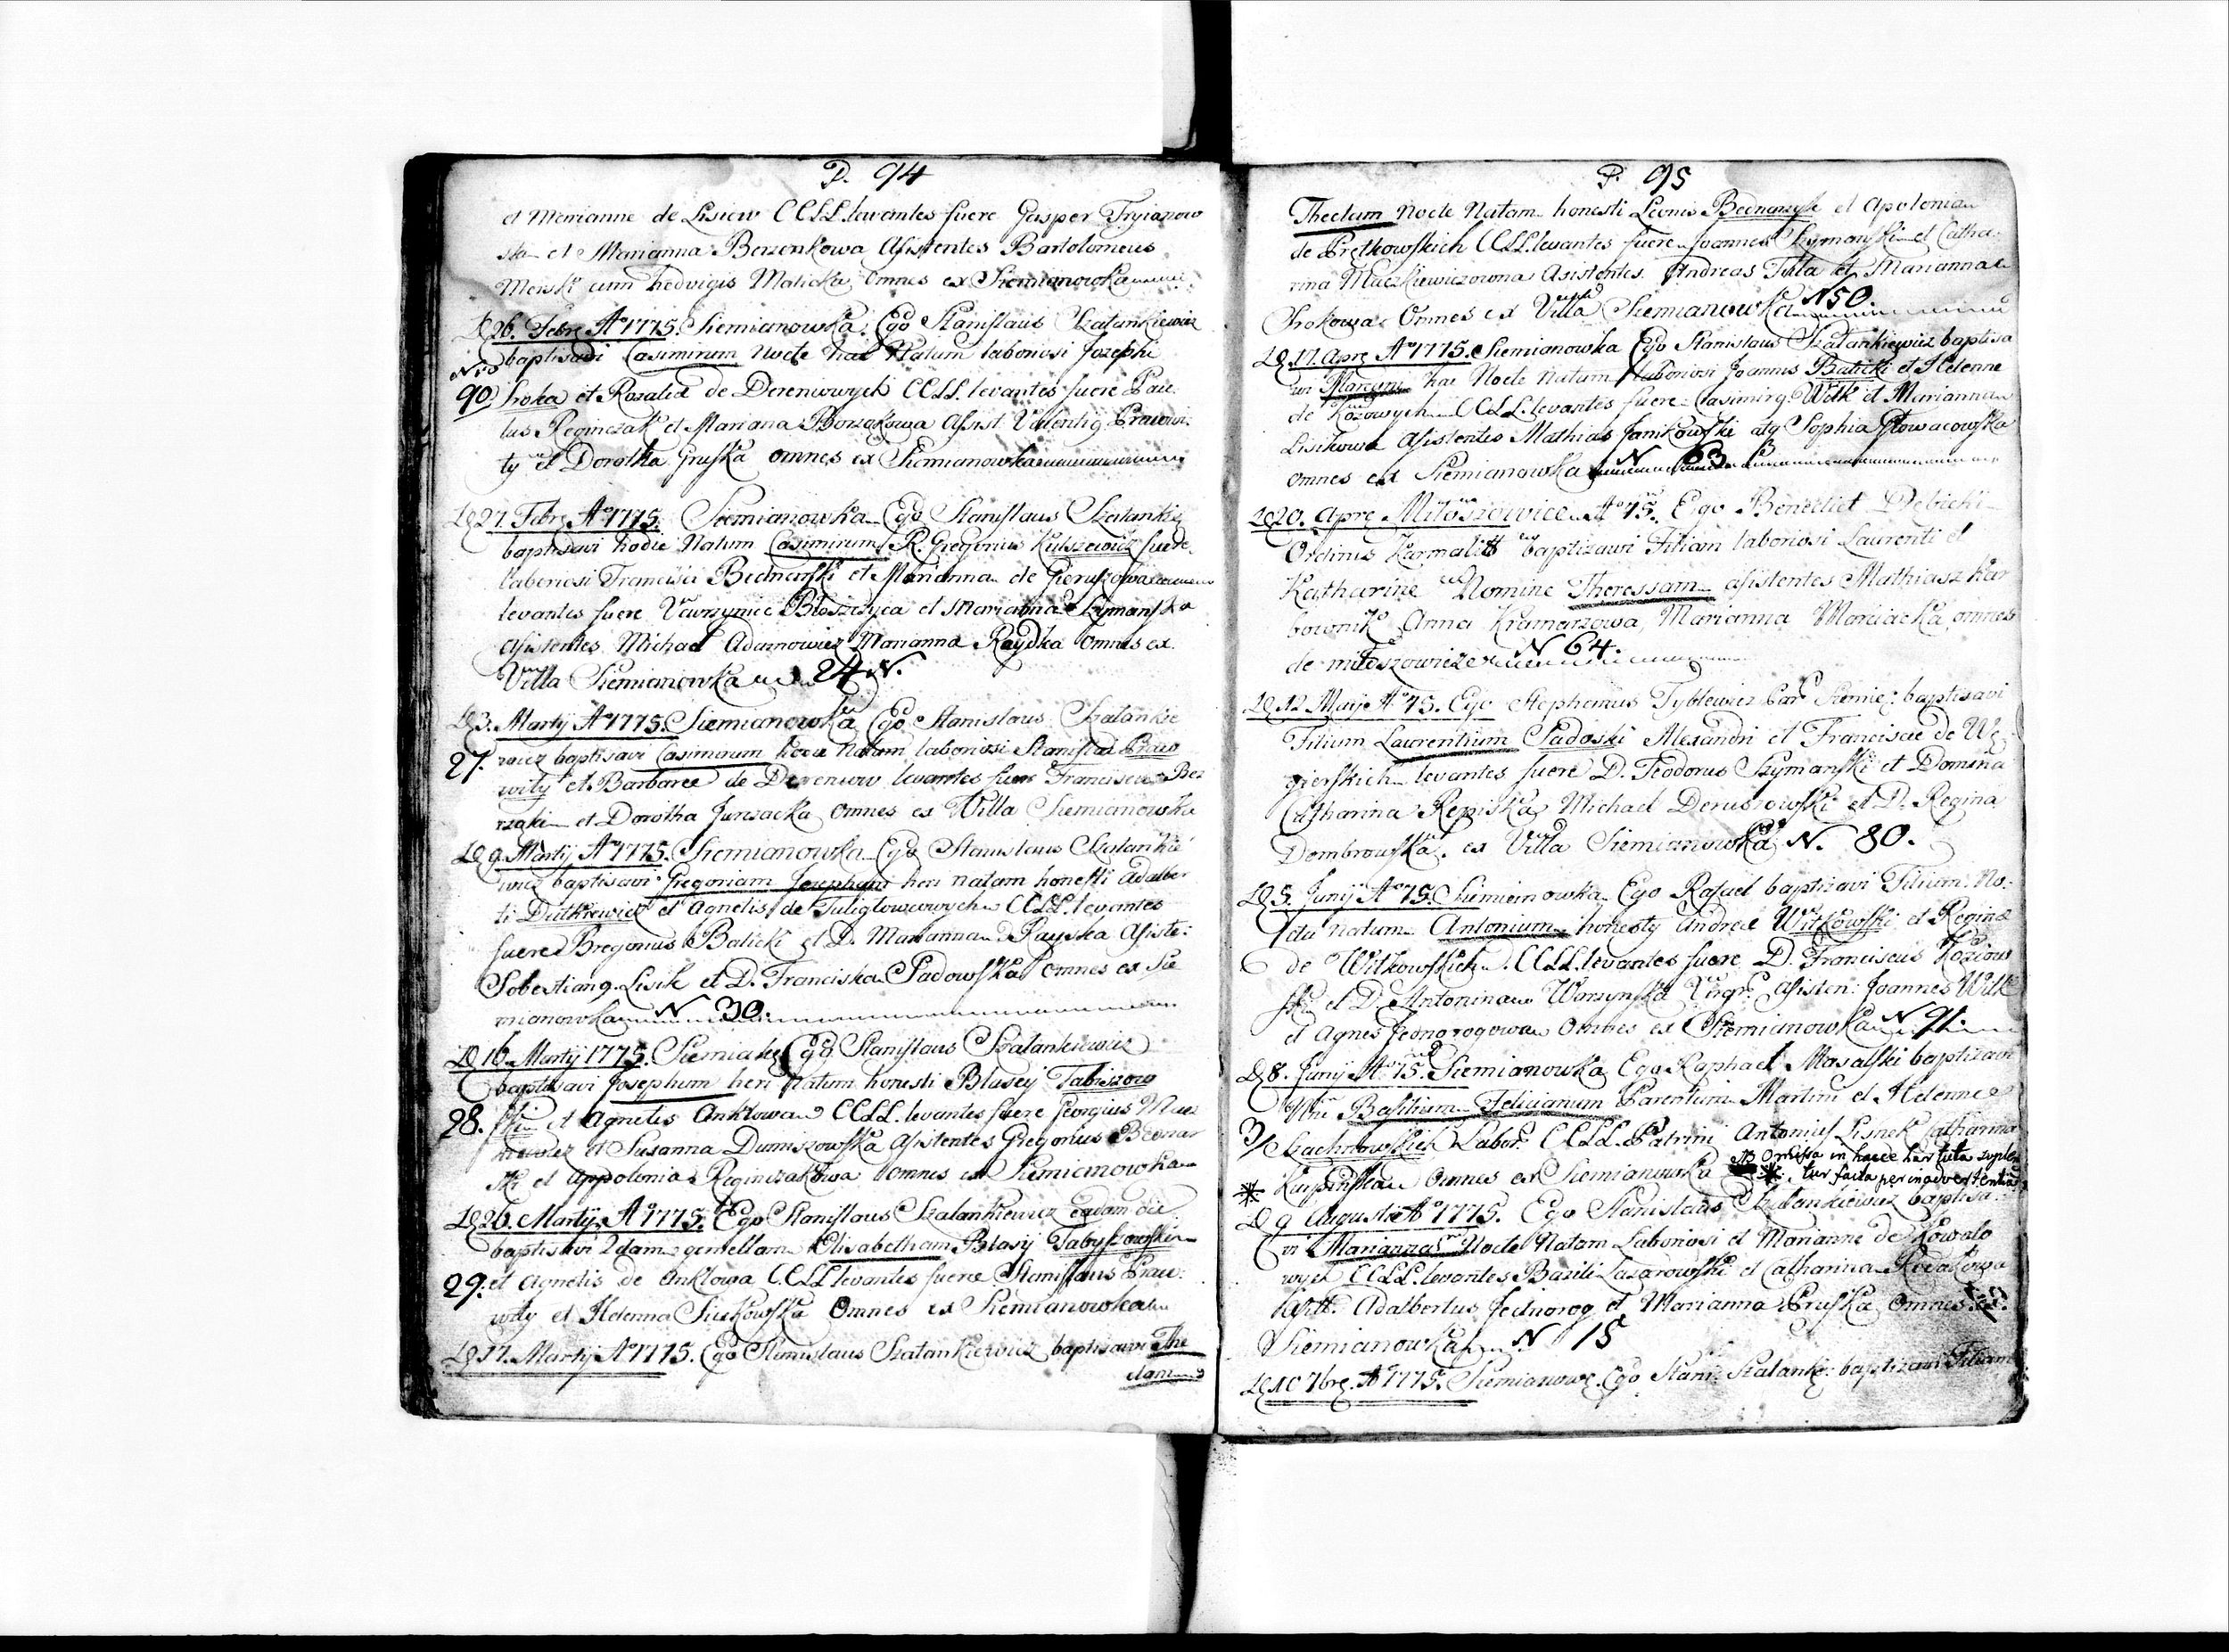 P. 94
et Marianne de Lisiew CCLL. levantes fuere Gasper Tryianow
ska et Marianna Berzenkowa Asistentes Bartolomeus
Merski cum hedvigis Malicka Omnes ex Siemianowka
D 26. Febr. Aº 1775. Siemianowka. Ego Stanislaus Szatankiewicz
baptisavi Casimirum Nocte hac Natum laboriosi Josephi
Nro
90 Sroka et Rosalia de Dereniowych CCLL. levantes fuere Pau
lus Reginczak et Mariana Borzakowa Asist. Valentig Prawi
ty et Dorotha Gruska omnes ex Siemianowka
D 27. Febr. Aº 1775. Siemianowka Ego Stanislaus Szatankie
baptisavi hodie Natum Casimirum R. Gregorius fuere
laboriosi Francisci Bednarski et Marianna de
levantes fuere Wawrzyniec et Marianna Szymanska
Asistentes Michael Adamowicz Marianna Raydka Omnes ex
Villa Siemianowka 24 N.
D 3. Martij Aº 1775. Siemianowka Ego Stanislaus Szatankie
27. wicz baptisavi Casimirum Natum laboriosi Stanislai Praw
wity et Barbaree de Dereniow levantes fuere Franciscus Ber
rzaki et Dorotha Jurczacka Omnes ex Willa Siemianowka
D 9. Martij Aº 1775. Siemianowka Ego Stanislaus Szatankie
wicz baptisavi Gregorium Josephum heri natum honesti Adalber
ti Dutkiewicz et Agnetis de CCLL. levantes
fuere Gregorius Balicki et D. Marianna Rayska Asiste:
Sobestiang. Lisik et D. Franciska Sadowska omnes ex Sie
mianowka N 30.
D 16. Martij 1775. Siemia Ego Stanislaus Szatankiewicz
baptisavi Josephum heri Natum honesti Blaseij Tabiszow
28. ski et Agnetis Anktowa CCLL. levantes fuere Georgius Macz
kiewicz et Susanna Dumiszowska Asistentes Gregorius Bednar
ski et Appolonia Reginczakowa Omnes ex Siemianowka
D 26. Martij Aº 1775. Ego Stanislaus Szatankiewicz eadam die
baptisavi 2dam gemellam Elisabetham Blasij Tabyszowski
29. et Agnetis de Anktowa CCLL levantes fuere Stanislaus Praw
wity et Helenna Siutkowska Omnes ex Siemianowka
D 17. Martij Aº 1775. Ego Stanislaus Szatankiewicz baptisavi The
clam
P. 95
Theclam Nocte Natam honesti Leonis Bednarzyk et Apolonia
de Prętkowskich CCLL. levantes fuere Joannes Szymanski et Catha
rina Maczkiewiczowna Asistentes Andreas Tulla et Marianna
Srokowa Omnes ex Villa Siemianowka N 50.
D 17. Apre Aº 1775. Siemianowka Ego Stanislaus Szatankiewicz baptisa
vi Marcum hac Nocte Natum laboriosi Joannis Balicki et Helenne
de Kozowych CCLL. levantes fuere Casimirg. Wilk et Marianna
Lisikowa Asistentes Mathias Janikowski atq Sophia Głowacowska
omnes ex Siemianowka N 63
D 20. Apre Miłoszowice Aº 75. Ego Benedict Debicki
Ordinis Karmalitt baptizavi Filiam laboriosi Laurenti et
Katharine Nomine Theressam asistentes Mathiasz Kar
bownik Anna Kramarzowa, Marianna Marciacka, omnes
de miłoszowice N 64.
D 12. Maij Aº 75. Ego Stephanus Tyblewicz Par Siemie: baptisavi
Filium Laurentium Sadoski Alexandri et Franciscae de We
gierskich levantes fuere D. Teodorus Szymanski et Domina
Catharina Repiska, Michael Derusiowski et D. Regina
Dombrowska. ex Villa Siemianowka N. 80.
D 5. Junij Aº 75. Siemianowka Ego Rafael baptizavi Filium. No
cta natum Antonium honesty Andreæ Witkowski et Reginæ
de Witkowskich. CCLL. levantes fuere D. Franciscus Koziow
ski et D. Antonina Warzynska Virg: Asisten: Joannes Wilk
et Agnes Jednorogowa Omnes ex Siemianowka N 91.
D 8. Junij Aº 75. Siemianowka Ego Raphael Masalski baptizavi
Basilium Felicianum Parentum Martini et Helenne
31 Labor: CCLL. Patrini Antonius Lisnek Catharina
Karpinska Omnes ex Siemianowka NB Omissa in hacce hartuta suplen
* * tur facta per inadvertentia
D 9 Augusti Aº 1775. Ego Stanislaus Szatankiewicz baptisa
vi Mariannam Nocte Natam Laboriosi et Marianne de Kowalo
wych CCLL. levantes Basili Lazarowski et Catharina
Asitt. Adalbertus Jednorog et Marianna Pruska Omnes ex
Siemianowka N 15
D 10 7bre. Aº 1775. Siemianow. Ego Stanis: Szatankie: baptizavi Filiam